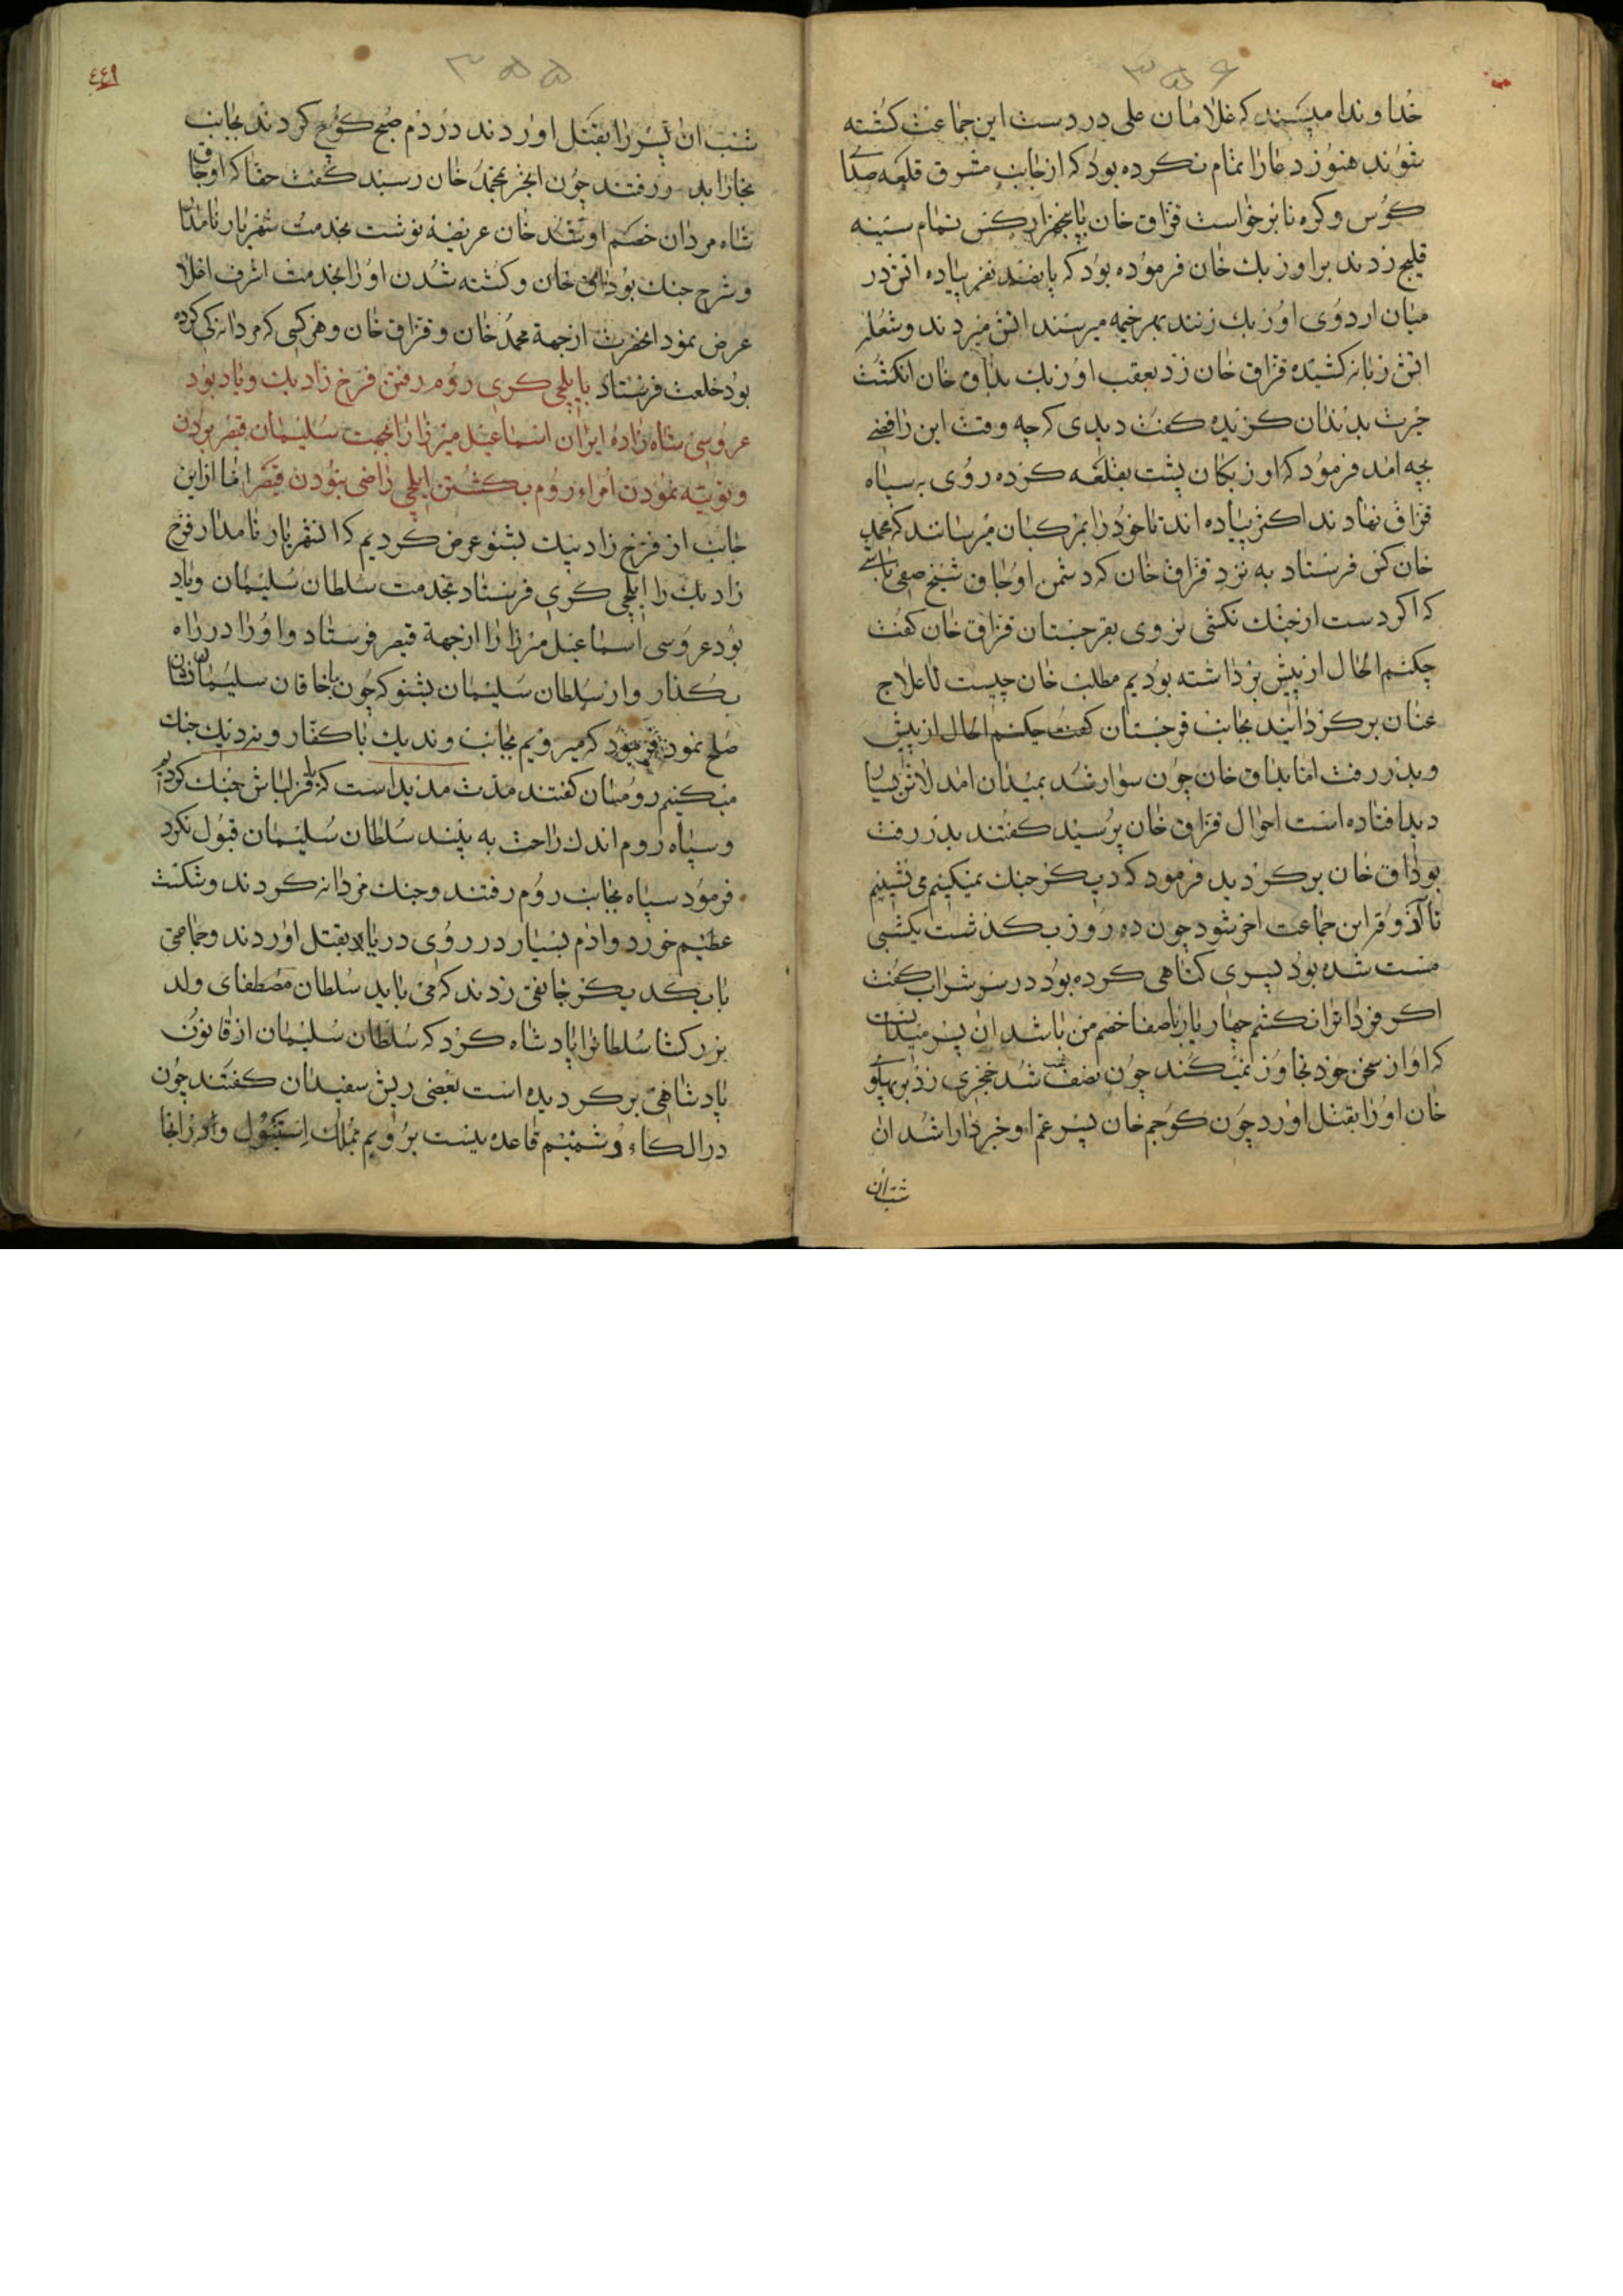 ۳۵۶
خداوندا مپسند که غلامان علی در دست این جماعت کشته
شوند هنوز دعا را تمام نکرده بود که از جانب مشرق قلعه صدای
کوس و کره نا برخواست قزاق خان با پنجهزار کس تمام سینه
قلیج زدند بر اوزبک خان فرموده بود که پانصد نفر پیاده اتش در
میان اردوی اوزبک زنند بهر خیمه میرسند اتش میزدند و شعله
اتش زبانه کشیده قزاق خان زد بعقب اوزبک بداق خان انکشت
حیرت بدندان کزیده کفت دیدی که چه وقت این رافضی
بچه امد فرمود که اوزبکان پشت بقلعه کرده روی به سپاه
قزاق نهادند اکثر پیاده اند تا خود را بمرکبان میرسانند که محمد
خان کس فرستاد به نزد قزاق خان که دشمن اوجاق شیخ صفی باشی
که اکر دست از جنک نکشی نروی بقرجستان قزاق خان کفت
چکنم الحال از پیش برداشته بودیم مطلب خان چیست لاعلاج
عنان برکردانید بجانب قرجستان کفت چکنم الحال از پیش
و بدر رفت اما بداق خان چون سوار شد بمیدان امد لاش بسیار
دید افتاده است احوال قزاق خان پرسید کفتند بدر رفت
بوداق خان برکردید فرمود که دیکر جنک نمیکنیم می نشینیم
تا آذوقه این جماعت اخر شود چون ده روز بکذشت یکشبی
مست شده بود پسری کناهی کرده بود در سر شراب کفت
اکر فردا ترا نکشم چهار یار باصفا خصم من باشد ان پسر میدانست
که او از سخن خود تجاوز نمیکند چون نصف شب شد خنجری زد بر پهلوی
خان او را بقتل اورد چون کوجم خان پسر عم او خبردارا شد ان
شب ان
۳۵۵
٤٤٩
شب ان پسر را بقتل اوردند در دم صبح کوچ کردند بجانب
بخارا بدر رفتند چون این خبر بمحمد خان رسید کفت حقا که اوجاق
شاه مردان خصم او شد خان عریضه نوشت بخدمت شهریار نامدار
و شرح جنک بوداق خان و کشته شدن او را بخدمت اشرف اعلا
عرض نمود انحضرت از جهة محمد خان و قزاق خان و هر کسی که مردانه کی کرده
بود خلعت فرستاد با یلچی کری روم رفتن فرخ زاد بیک و یاد بود
عروسی شاه زادهٔ ایران اسماعیل میرزا را بجهت سلیمان قیصر بردن
و توبیه نمودن امراء روم بکشتن ایلچی راضی نبودن قیصر اما از این
جانب از فرخ زاد بیک بشنو عرض کردیم که انشهریار نامدار فرخ
زاد بیک را ایلچی کری فرستاد بخدمت سلطان سلیمان و یاد
بود عروسی اسماعیل میرزا را از جهة قیصر فرستاد و او را در راه
بکذار و از سلطان سلیمان بشنو که چون با خاقان سلیمان نشان
صلح نمود فرمود که میرویم بجانب وندیک با کفار ونردیک جنک
میکنیم رومیان کفتند مدت مدید است که با قزلباش جنک کردیم
و سپاه روم اندک راحت به بینند سلطان سلیمان قبول نکرد
فرمود سپاه بجانب روم رفتند و جنک مردانه کردند و شکست
عظیم خورد و ادم بسیار در روی دریا بقتل اوردند و جماعتی
با یکدیکر جانقی زدند که می باید سلطان مصطفای ولد
بزرکتر سلطانرا پادشاه کرد که سلطان سلیمان از قانون
پادشاهی برکردیده است بعضی ریش سفیدان کفتند چون
در الکاء دشمنیم قاعده نیست برویم بملک استنبول و از انجا